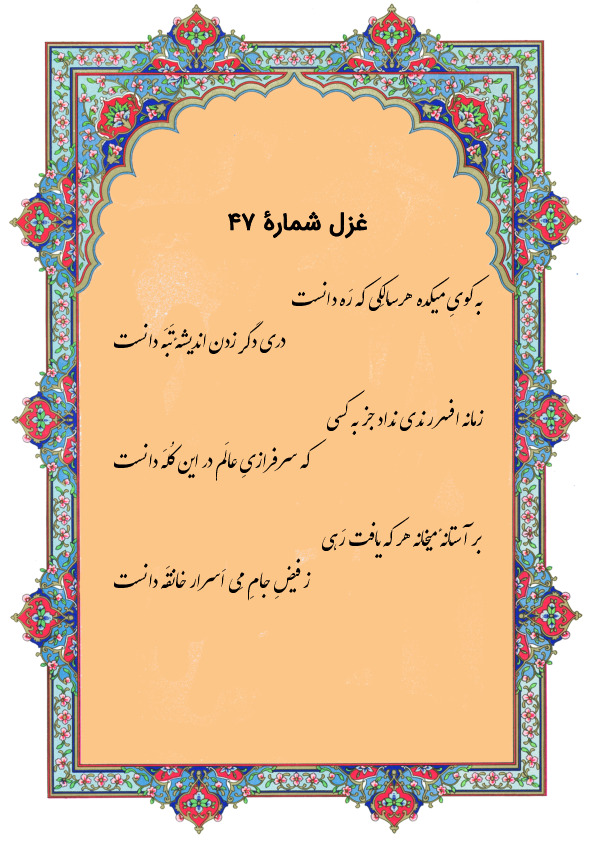 غزل شمارهٔ ۴۷
به کویِ میکده هر سالِکی که رَه دانست
دری دگر زدن اندیشهٔ تَبَه دانست
زمانه افسر رندی نداد جز به کسی
که سرفرازیِ عالَم در این کُلَه دانست
بر آستانهٔ میخانه هر که یافت رَهی
ز فیضِ جامِ مِی اَسرار خانقَه دانست